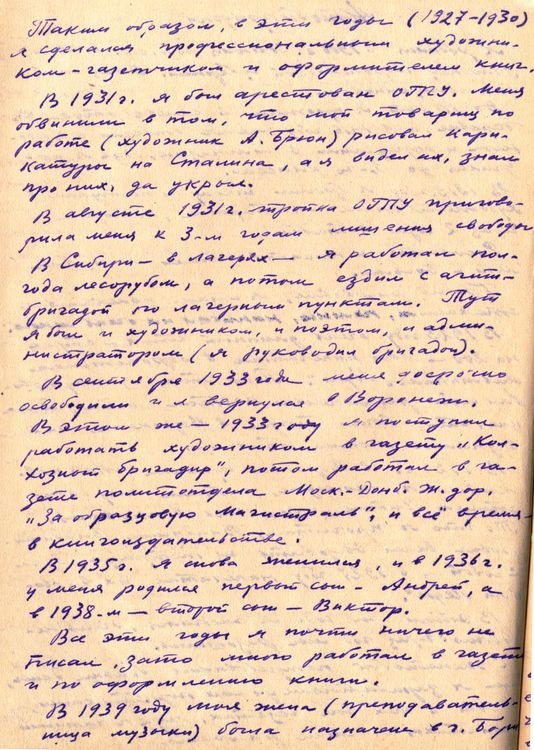 Таким образом, в эти годы (1927-1930)
я сделался профессиональным художни-
ком-газетчиком и оформителем книг.
В 1931 г. я был арестован ОГПУ. Меня
обвинили в том, что мой товарищ по
работе (художник А. Брюн) рисовал кари-
катуры на Сталина, а я видел их, знал
про них, да укрыл.
В августе 1931 г. тройка ОГПУ пригово-
рила меня к 3-м годам лишения свободы
В Сибири - в лагерях - я работал пол-
года лесорубом, а потом ездил с агит-
бригадой по лагерным пунктам. Тут
я был и художником, и поэтом, и адми-
нистратором (я руководил бригадой).
В сентябре 1933 года меня досрочно
освободили и я вернулся в Воронеж.
В этом же - 1933 году я поступил
работать художником в газету "Кол-
хозный бригадир", потом работал в га-
зете политотдела Моск.-Донб. ж. дор.
"За образцовую магистраль", и всё время -
в книгоиздательстве.
В 1935 г. я снова женился, и в 1936 г.
у меня родился первый сын - Андрей, а
в 1938-м - второй сын - Виктор.
Все эти годы я почти ничего не
писал, зато много работал в газете
и по оформлению книги.
В 1939 году моя жена (преподаватель-
ница музыки) была назначена в г. Бори